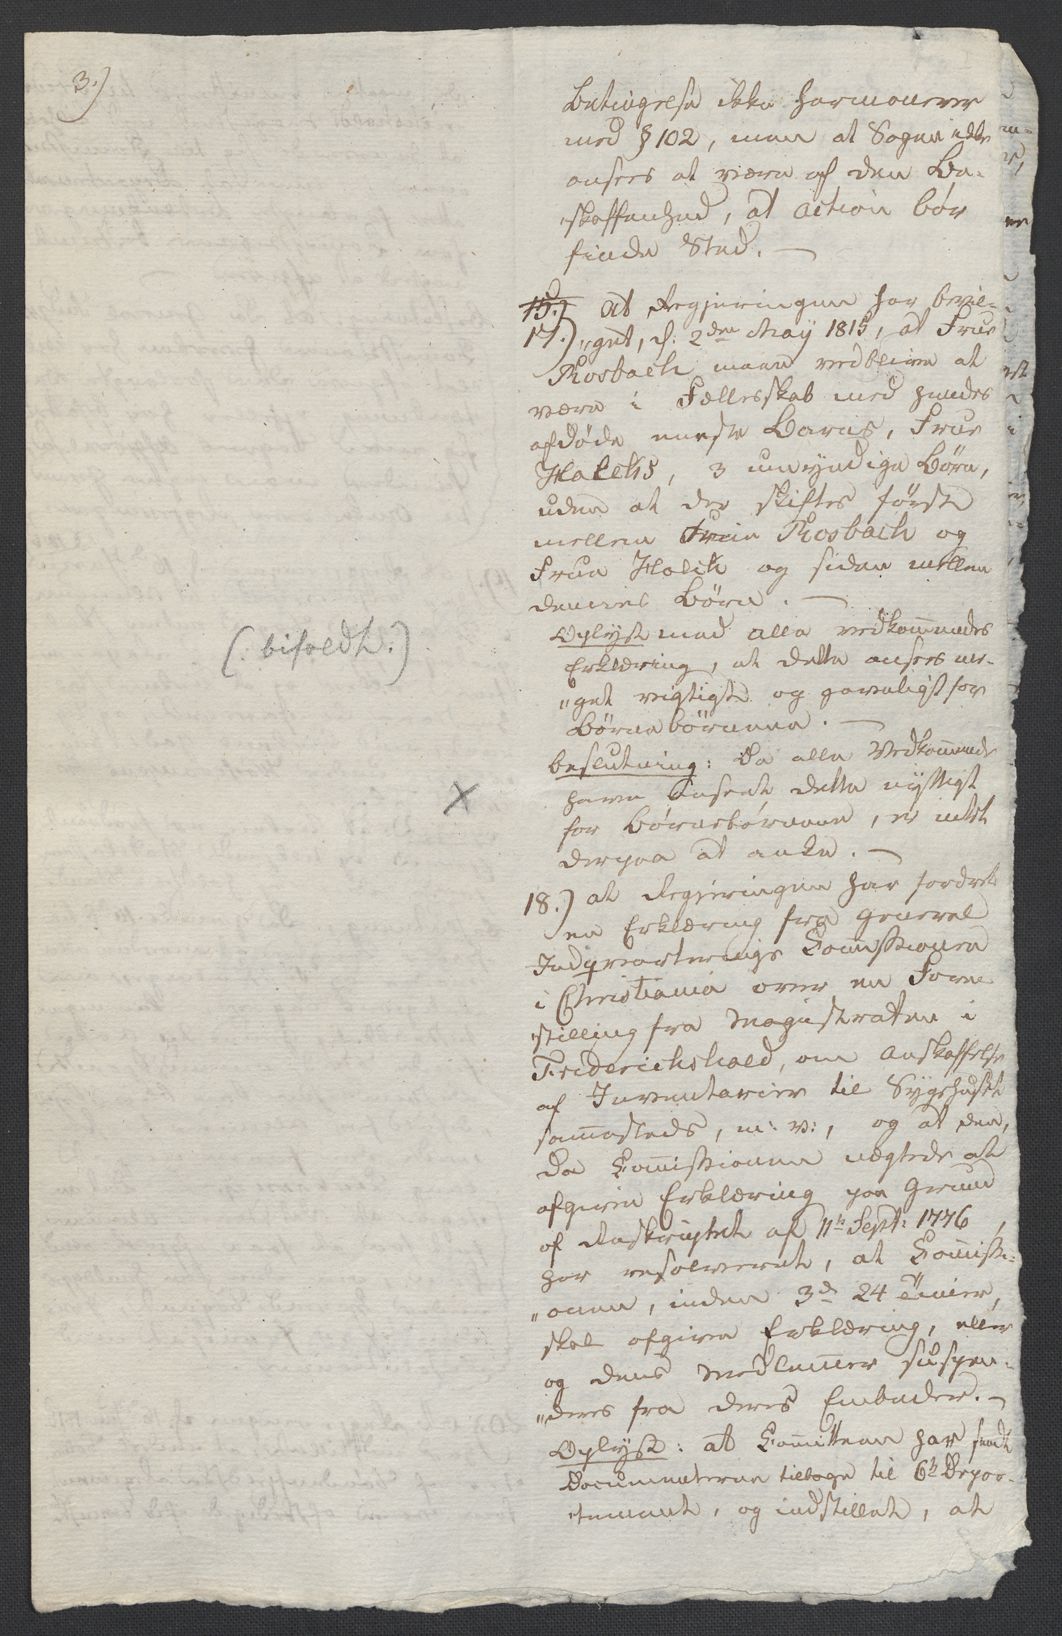 3.)
Betingelse ikke harmonerer
med § 102, men at Sagen ikke
ansees at være af den Be-
skaffenhed, at action bør
finde Sted. —
15.) at Regjeringen har bevil-
17.) "get, d: 2den May 1815, at Frue
Rosbach maae vedblive at
være i Fællesskab med hendes
afdøde eneste Barns, Frue
Holcks, 3 umyndige Børn,
uden at der skiftes først
mellem Frue Rosbach og
Frue Holck og siden mellem
dennes Børn. —
Oplyst med alle vedkommendes
Erklæring, at dette ansees me-
"get vigtigt og gavnligt for
Børnebørnene. —
beslutning: Da alle Vedkommende
have anseet dette nyttigt
for Børnebørnene, er intet
derpaa at anke. —
(bifaldt.)
18.) at Regjeringen har fordret
en Erklæring fra General
Indqvarterings Commissionen
i Christiania over en Fore-
stilling fra Magistraten i
Friderichshald, om Anskaffelse
af Inventarier til Sygehuset
sammesteds, m: v:, og at den,
da Commissionen nægtede at
afgive Erklæring paa Grund
af Rescriptet af 11te Sept: 1776,
har resolveret, at Commissi-
"onen, inden 3de 24 Timer,
skal afgive Erklæring, eller
og dens Medlemmer suspen-
"deres fra deres Embeder. —
Oplyst: at Committeen har sendt
Documenterne tilbage til 6te Depar-
tement, og indstillet, at